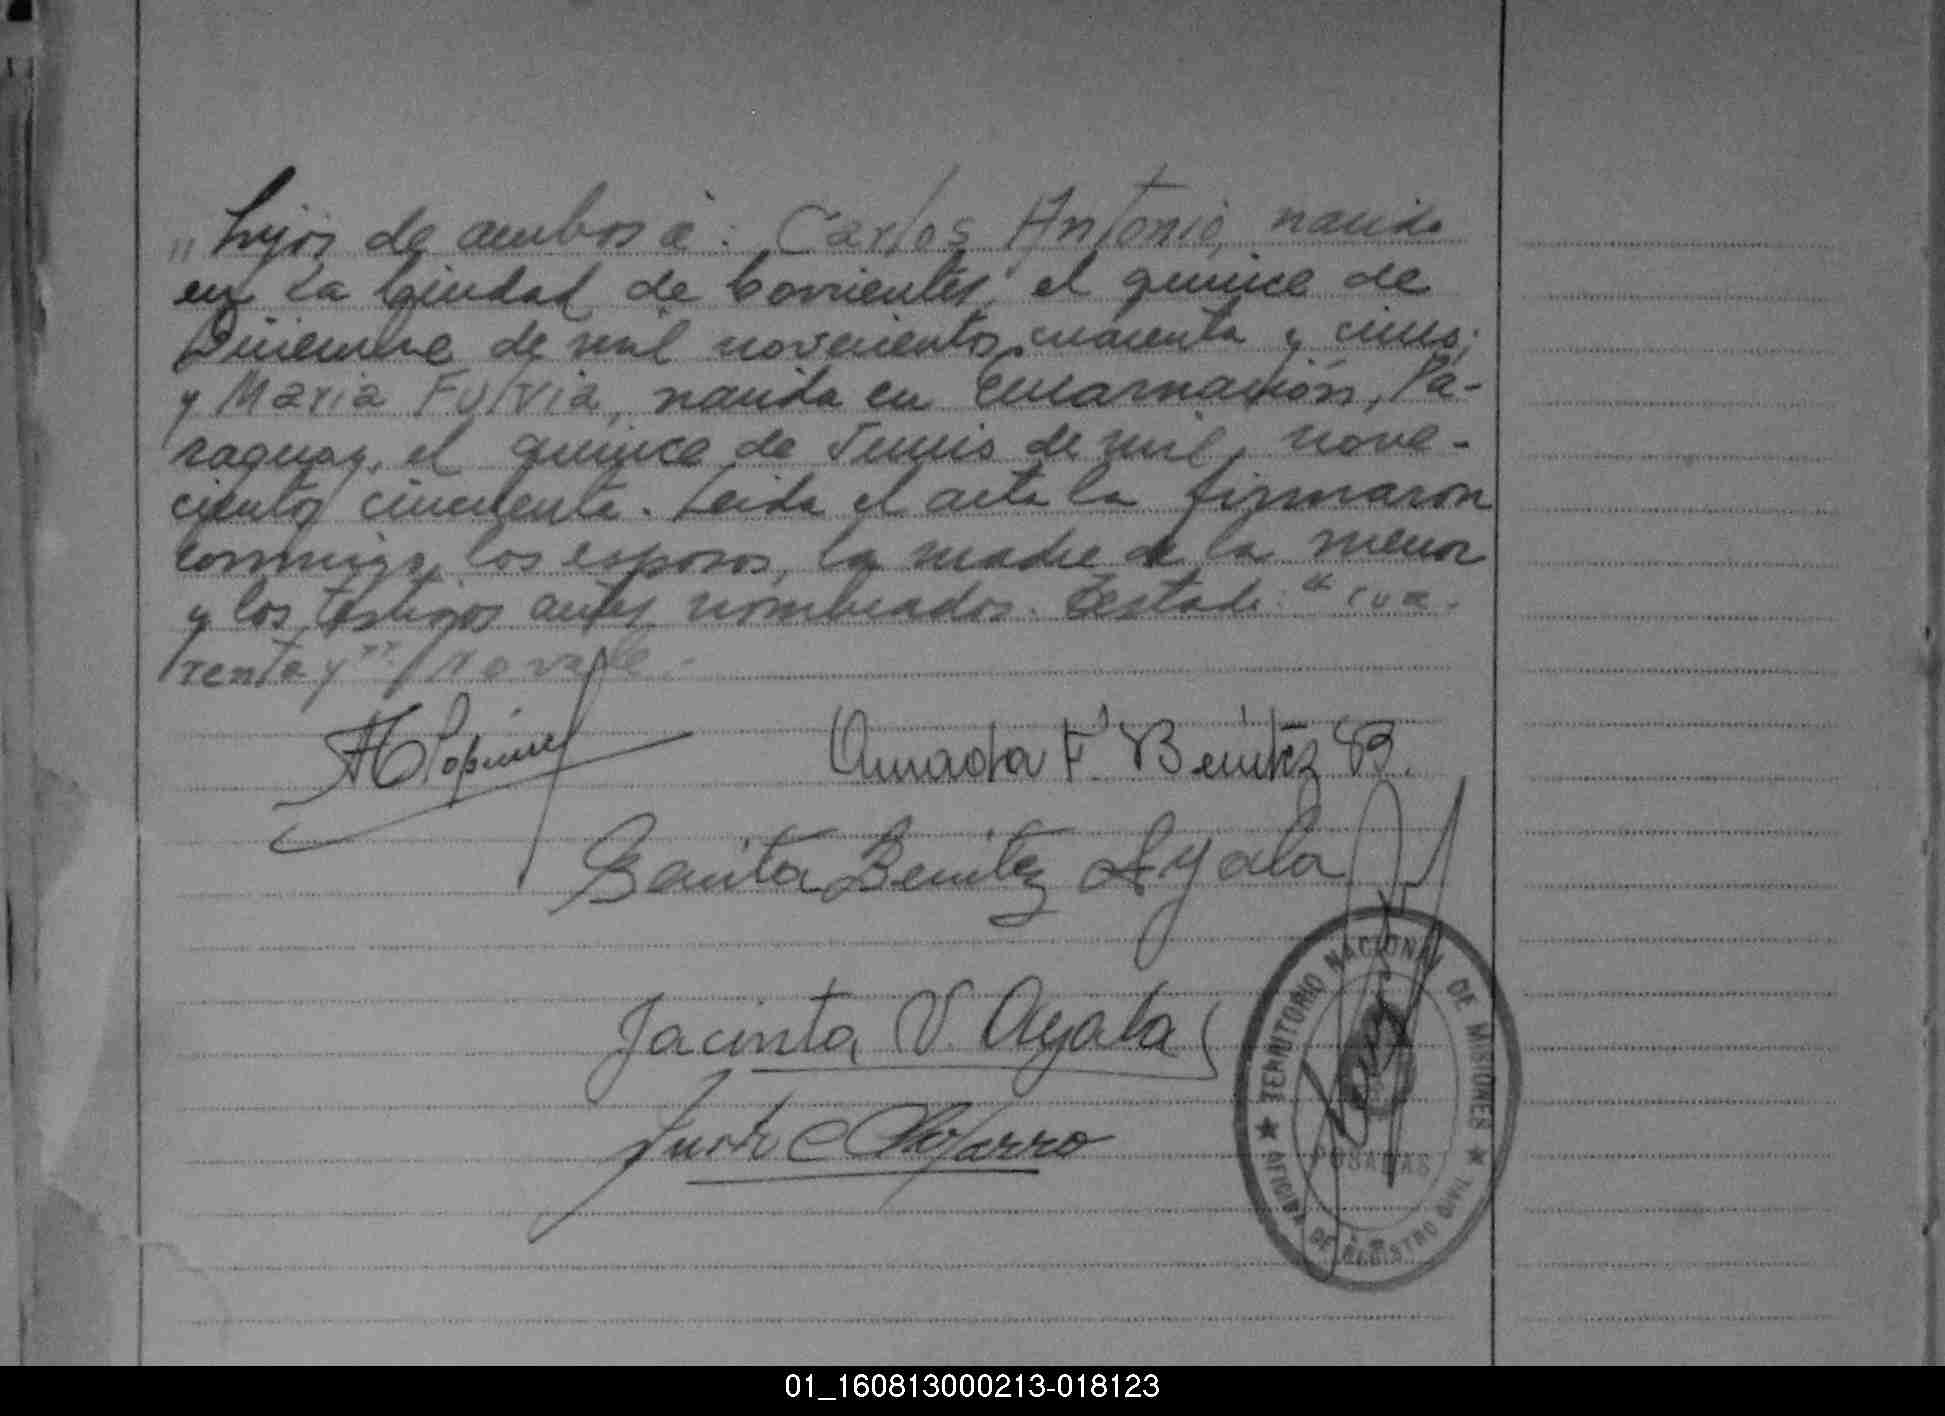 " hijos de ambos a: Carlos Antonio, nacido
en la Ciudad de Corrientes, el quince de
Diciembre de mil novecientos cuarenta y cinco;
y Maria Fulvia, nacida en Encarnación, Pa-
raguay, el quince de Junio de mil nove-
cientos cincuenta. Leida el acta la firmaron
conmigo los esposos, la madre de la menor
y los testigos antes nombrados. Testado: "cua-
renta y": no vale.-
Amada F. Benitez B.
Benita Benitez Ayala
Jacinta V. Ayala
Justo C.
TERRITORIO NACIONAL DE MISIONES
POSADAS
OFICINA DE REGISTRO CIVIL
01_160813000213-018123